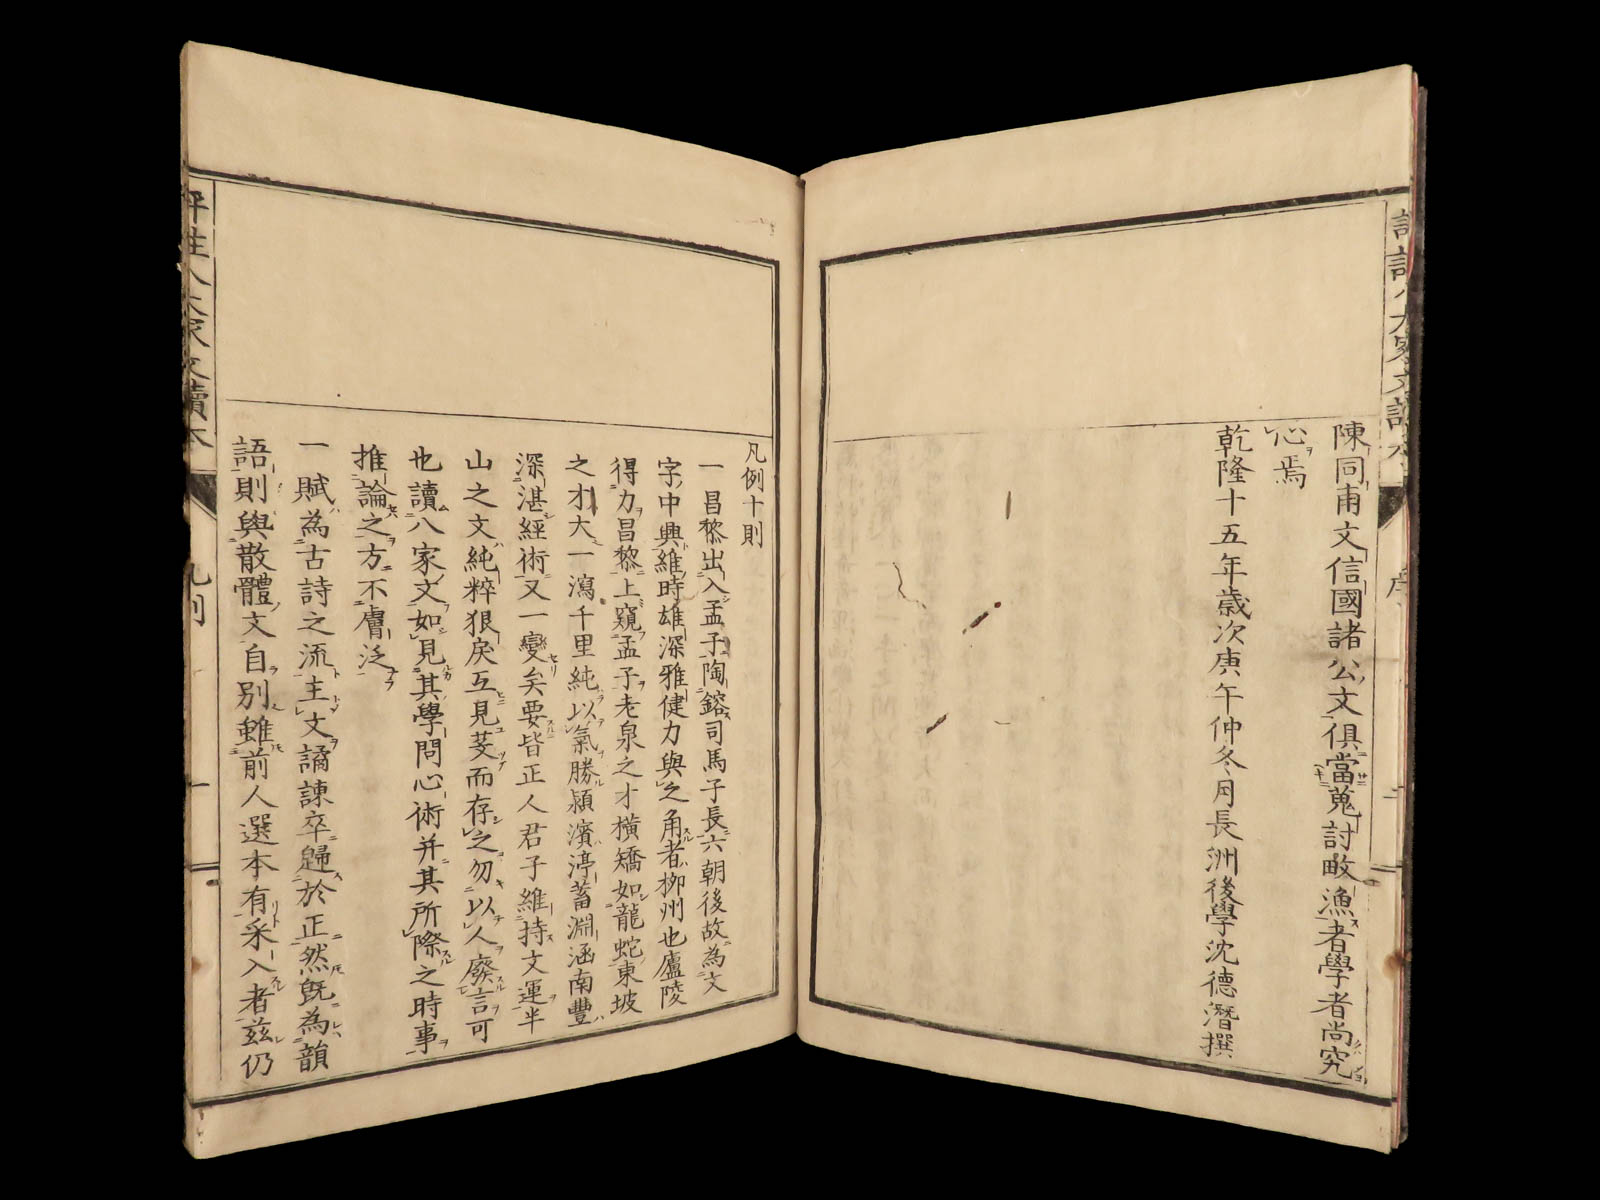 陳同甫文信國諸公文俱當蒐討畋漁者學者尚究
心焉
乾隆十五年歲次庚午仲冬月長洲後學沈德潛撰
凡例十則
一昌黎出入孟子陶鎔司馬子長六朝後故為文
字中興維時雄深雅健力與之角者柳州也廬陵
得力昌黎上窺孟子老泉之才橫矯如龍蛇東坡
之才大一瀉千里純以氣勝潁濱渟蓄淵涵南豐
深湛經術又一變矣要皆正人君子維持文運半
山之文純粹狠戾互見芟而存之勿以人廢言可
也讀八家文如見其學問心術并其所際之時事
推論之方不膚泛
一賦為古詩之流主文譎諫卒歸於正然既為韻
語則與散體文自別雖前人選本有采入者茲仍
評註八大家文讀本
凡例